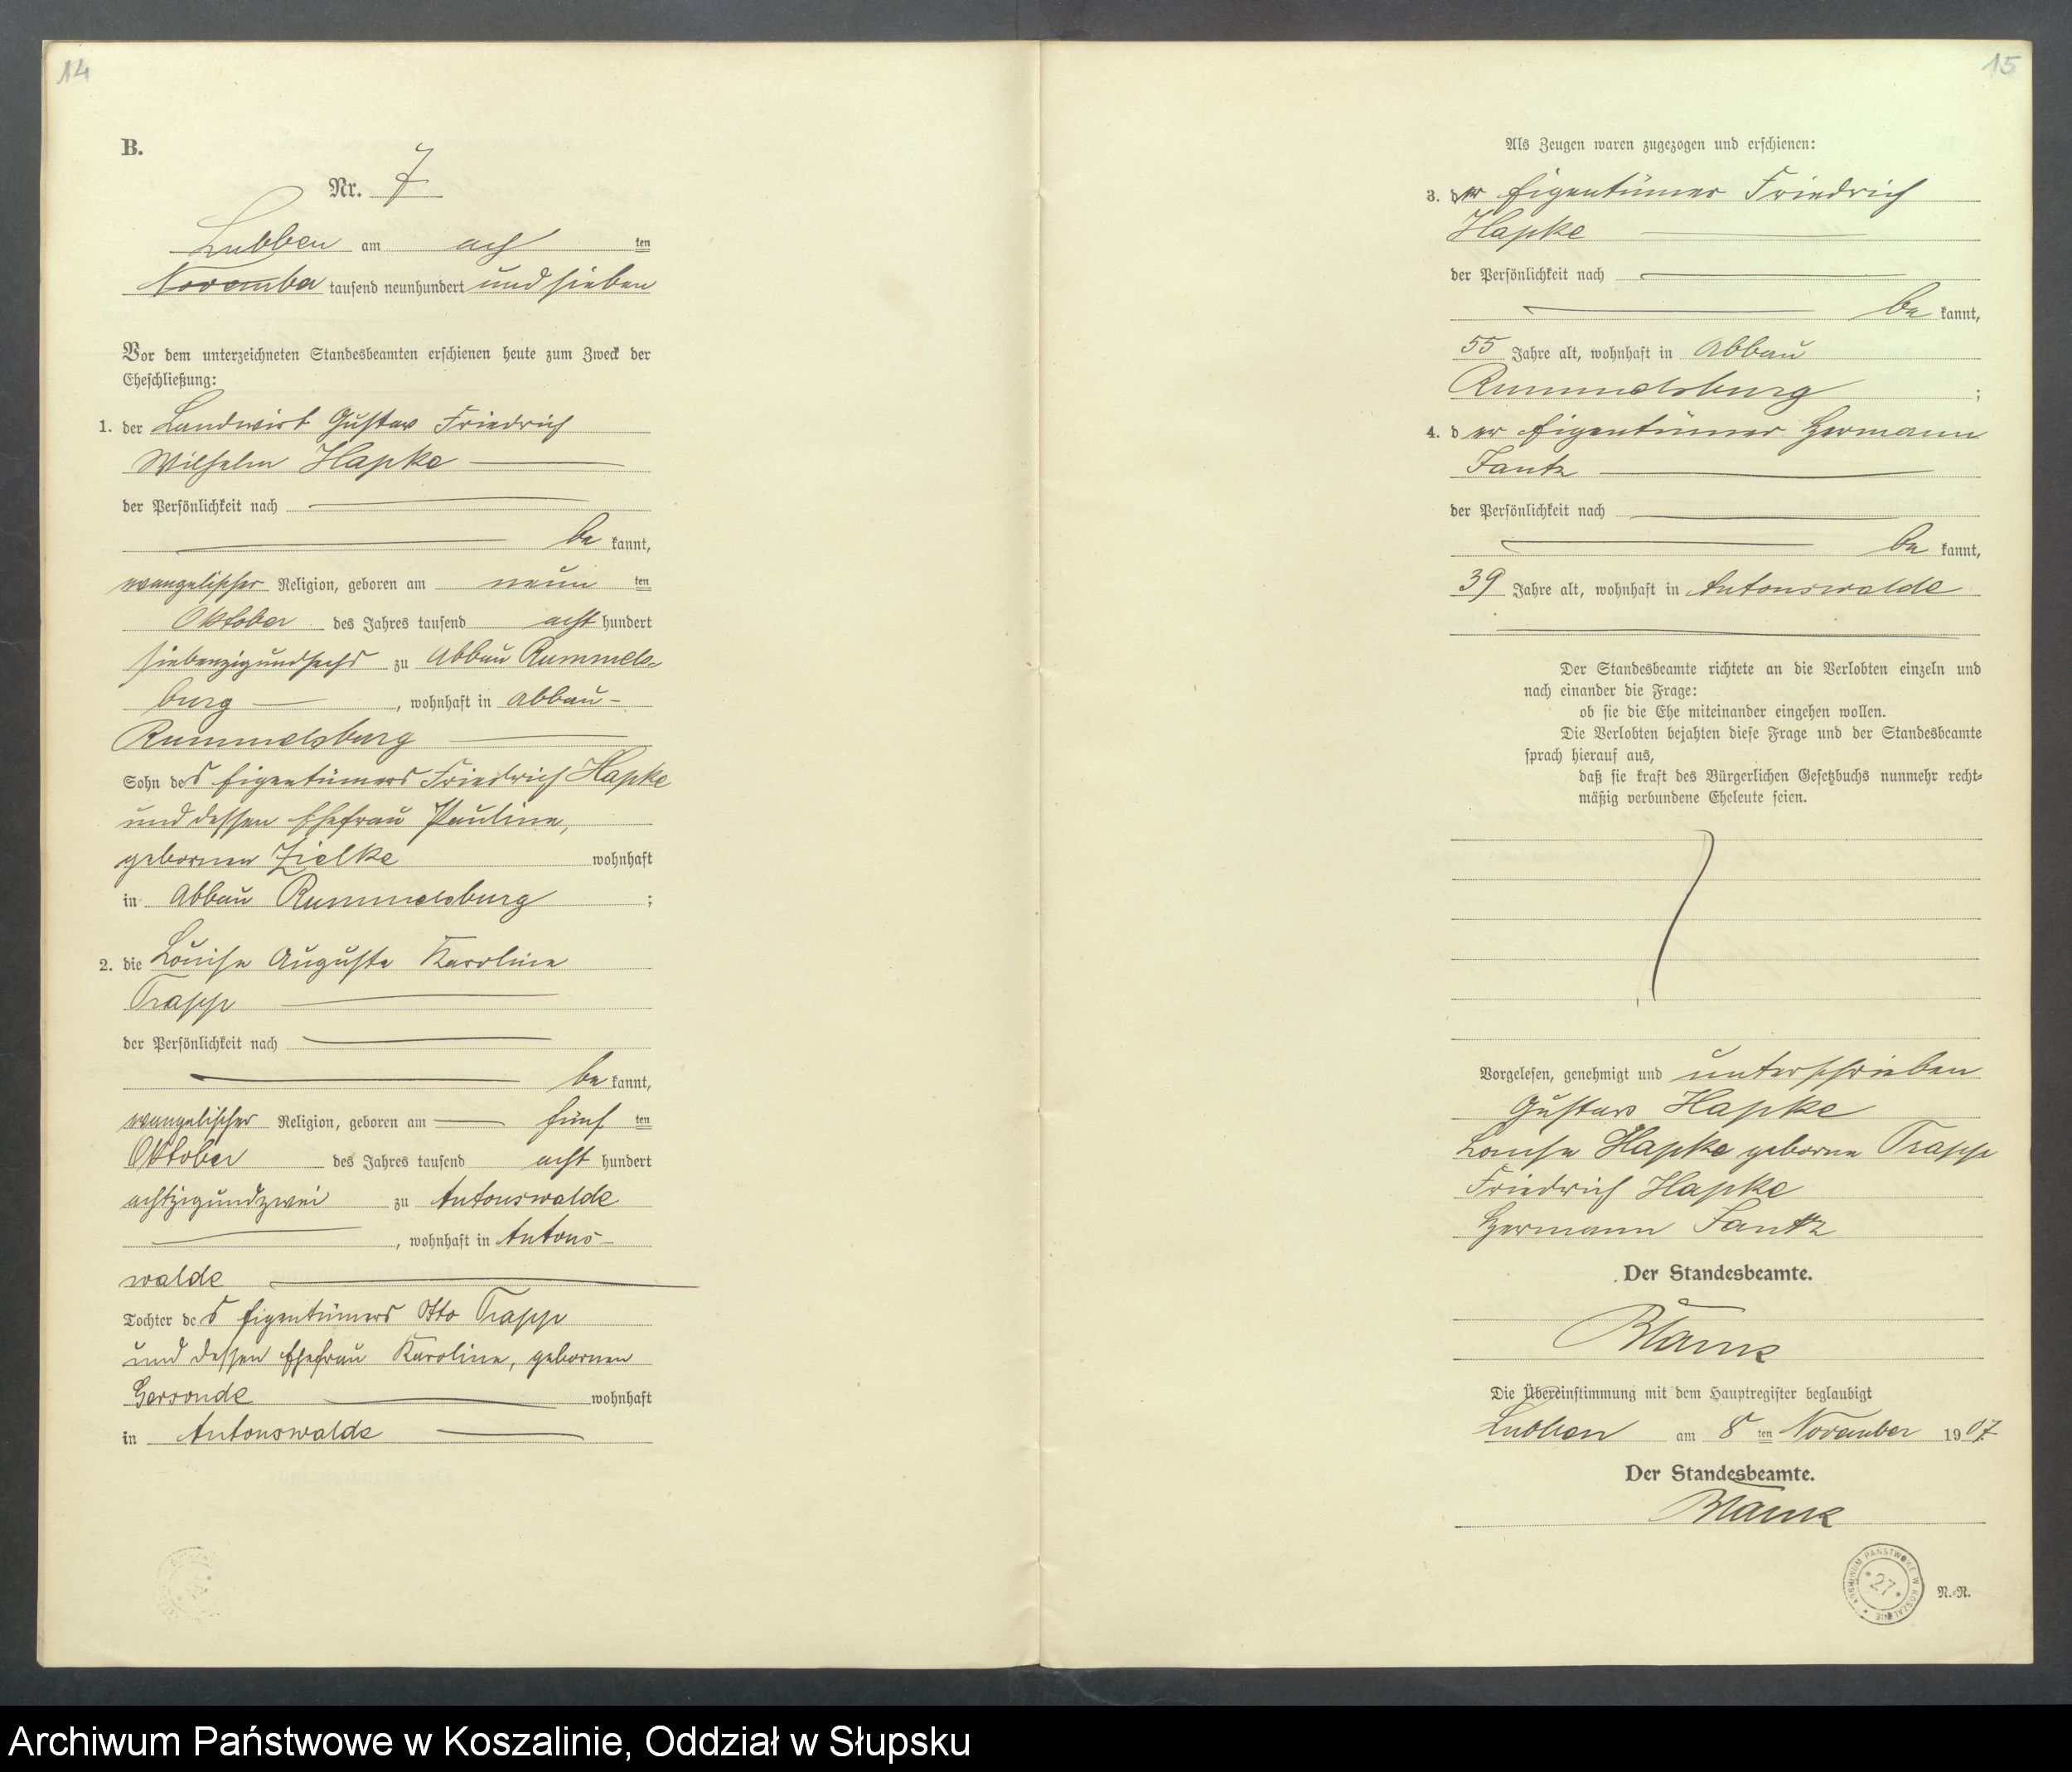 14
B.
Nr. 7
Lubben am ach ten
November tausend neunhundert und sieben
Vor dem unterzeichneten Standesbeamten erschienen heute zum Zweck der
Eheschließung:
1. der Landwirt Gustav Friedrich
Wilhelm Hapke
der Persönlichkeit nach
be kannt,
evangelischer Religion, geboren am neun ten
Oktober des Jahres tausend acht hundert
siebenzigundsechs zu Abbau Rummels-
burg , wohnhaft in Abbau-
Rummelsburg
Sohn des Eigentümers Friedrich Hapke
und dessen Ehefrau Pauline,
gebornen Zielke wohnhaft
in Abbau Rummelsburg ;
2. die Louise Auguste Karoline
Trapp
der Persönlichkeit nach
be kannt,
evangelischer Religion, geboren am fünf ten
Oktober des Jahres tausend acht hundert
achtzigundzwei zu Antonswalde
, wohnhaft in Antons-
walde
Tochter des Eigentümers Otto Trapp
und dessen Ehefrau Karoline, gebornen
Gersonde wohnhaft
in Antonswalde
15
Als Zeugen waren zugezogen und erschienen:
3. der Eigentümer Friedrich
Hapke
der Persönlichkeit nach
be kannt,
55 Jahre alt, wohnhaft in Abbau
Rummelsburg ;
4. der Eigentümer Hermann
Fantz
der Persönlichkeit nach
be kannt,
39 Jahre alt, wohnhaft in Antonswalde
Der Standesbeamte richtete an die Verlobten einzeln und
nach einander die Frage:
ob sie die Ehe miteinander eingehen wollen.
Die Verlobten bejahten diese Frage und der Standesbeamte
sprach hierauf aus,
daß sie kraft des Bürgerlichen Gesetzbuchs nunmehr recht-
mäßig verbundene Eheleute seien.
Vorgelesen, genehmigt und unterschrieben
Gustav Hapke
Louise Hapke geborne Trapp
Friedrich Hapke
Hermann Fantz
Der Standesbeamte.
Blank
Die Übereinstimmung mit dem Hauptregister beglaubigt
Lubben am 8 ten November 1907.
Der Standesbeamte.
Blank
ARCHIWUM PAŃSTWOWE W KOSZALINIE
* 27 *
N.-N.
Archiwum Państwowe w Koszalinie, Oddział w Słupsku